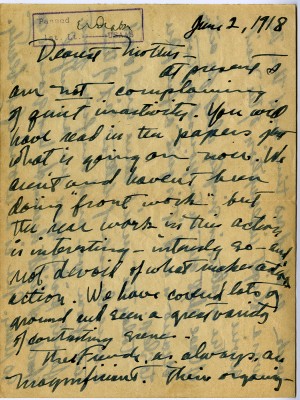 Passed
June 2, 1918
Dearest Mother -
at present I
am not complaining
of quiet inactivity. You will
have read in the papers just
what is going on now. We
aren't and haven't been
doing "front work" but
the rear work in this action
is interesting - intensely so - and
not devoid of what makes action
action. We have covered lots of
ground and seen a great variety
of contrasting scenes.
The French, as always, are
magnificent. Their organiz-